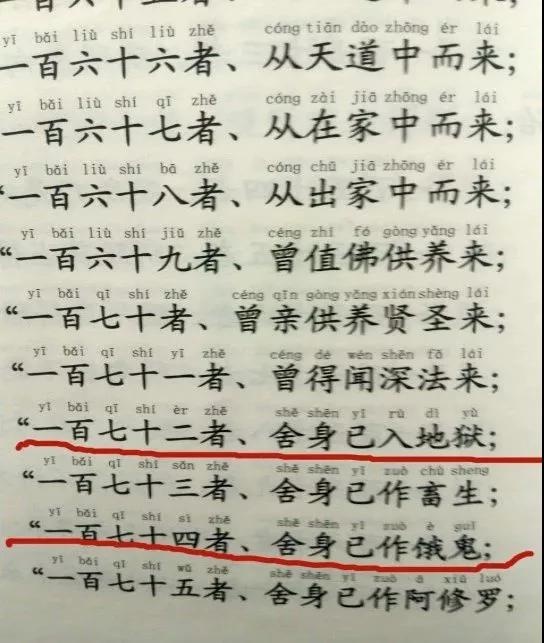 yī bǎi liù shí liù zhě cóng tiān dào zhōng ér lái
一百六十六者、从天道中而来;
yī bǎi liù shí qī zhě cóng zài jiā zhōng ér lái
一百六十七者、从在家中而来;
yī bǎi liù shí bā zhě cóng chū jiā zhōng ér lái
“一百六十八者、从出家中而来;
yī bǎi liù shí jiǔ zhě céng zhí fó gòng yǎng lái
“一百六十九者、曾值佛供养来;
yī bǎi qī shí zhě céng qīn gòng yǎng xián shèng lái
“一百七十者、曾亲供养贤圣来;
yī bǎi qī shí yī zhě céng dé wén shēn fǎ lái
“一百七十一者、曾得闻深法来;
yī bǎi qī shí èr zhě shě shēn yǐ rù dì yù
“一百七十二者、舍身已入地狱;
yī bǎi qī shí sān zhě shě shēn yǐ zuò chù sheng
“一百七十三者、舍身已作畜生;
yī bǎi qī shí sì zhě shě shēn yǐ zuò è guǐ
“一百七十四者、舍身已作饿鬼;
yī bǎi qī shí wǔ zhě shě shēn yǐ zuò ā xiū luó
“一百七十五者、舍身已作阿修罗;